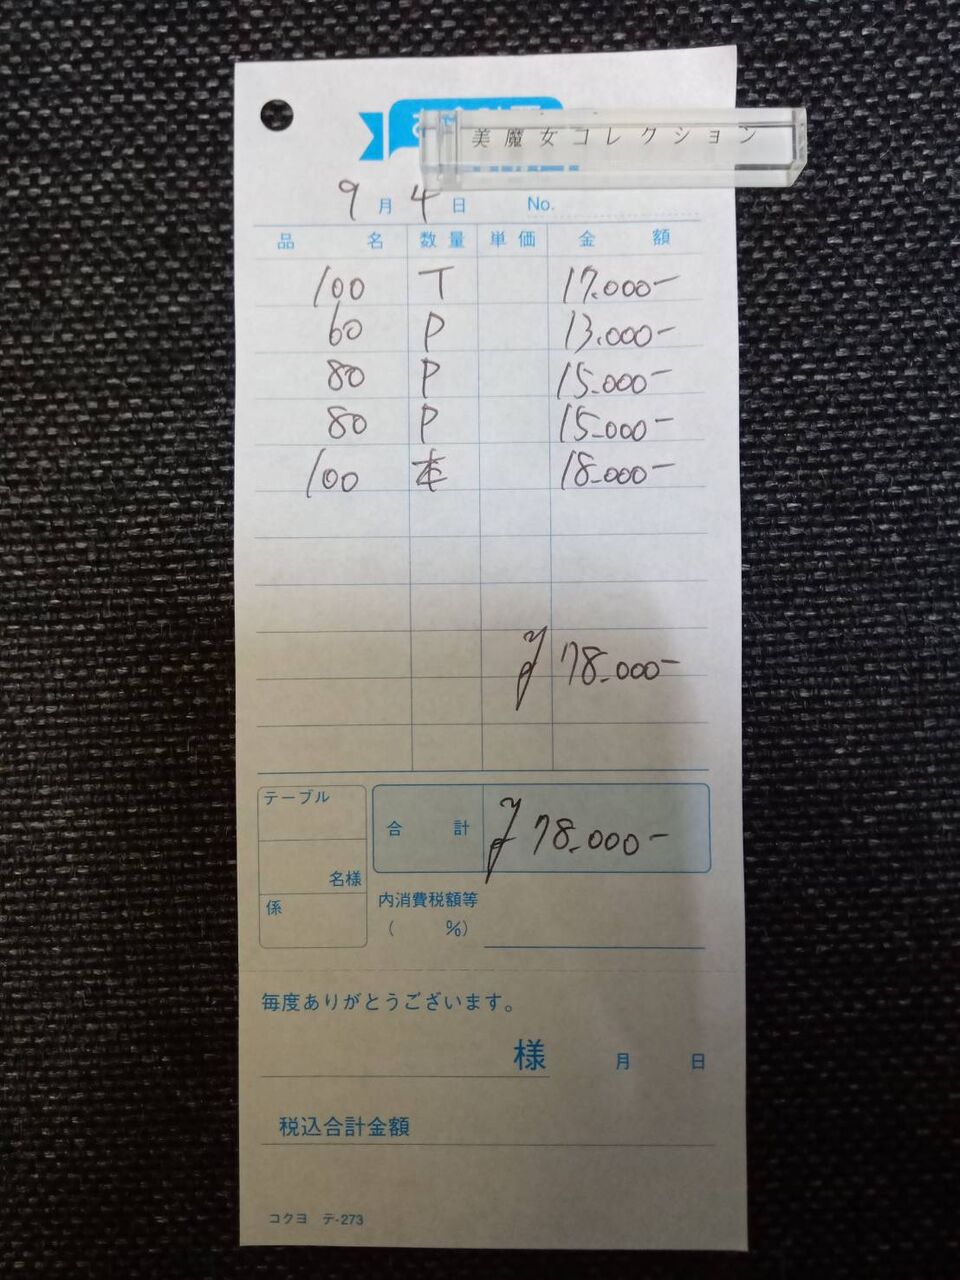 美魔女コレクション
9月4日 No.
品名 数量 単価 金額
100 T 17.000-
60 P 13.000-
80 P 15.000-
80 P 15.000-
100 本 18.000-
¥78.000-
テーブル
合計 ¥78.000-
名様
係
内消費税額等
( %)
毎度ありがとうございます。
様 月 日
税込合計金額
コクヨ テ-273